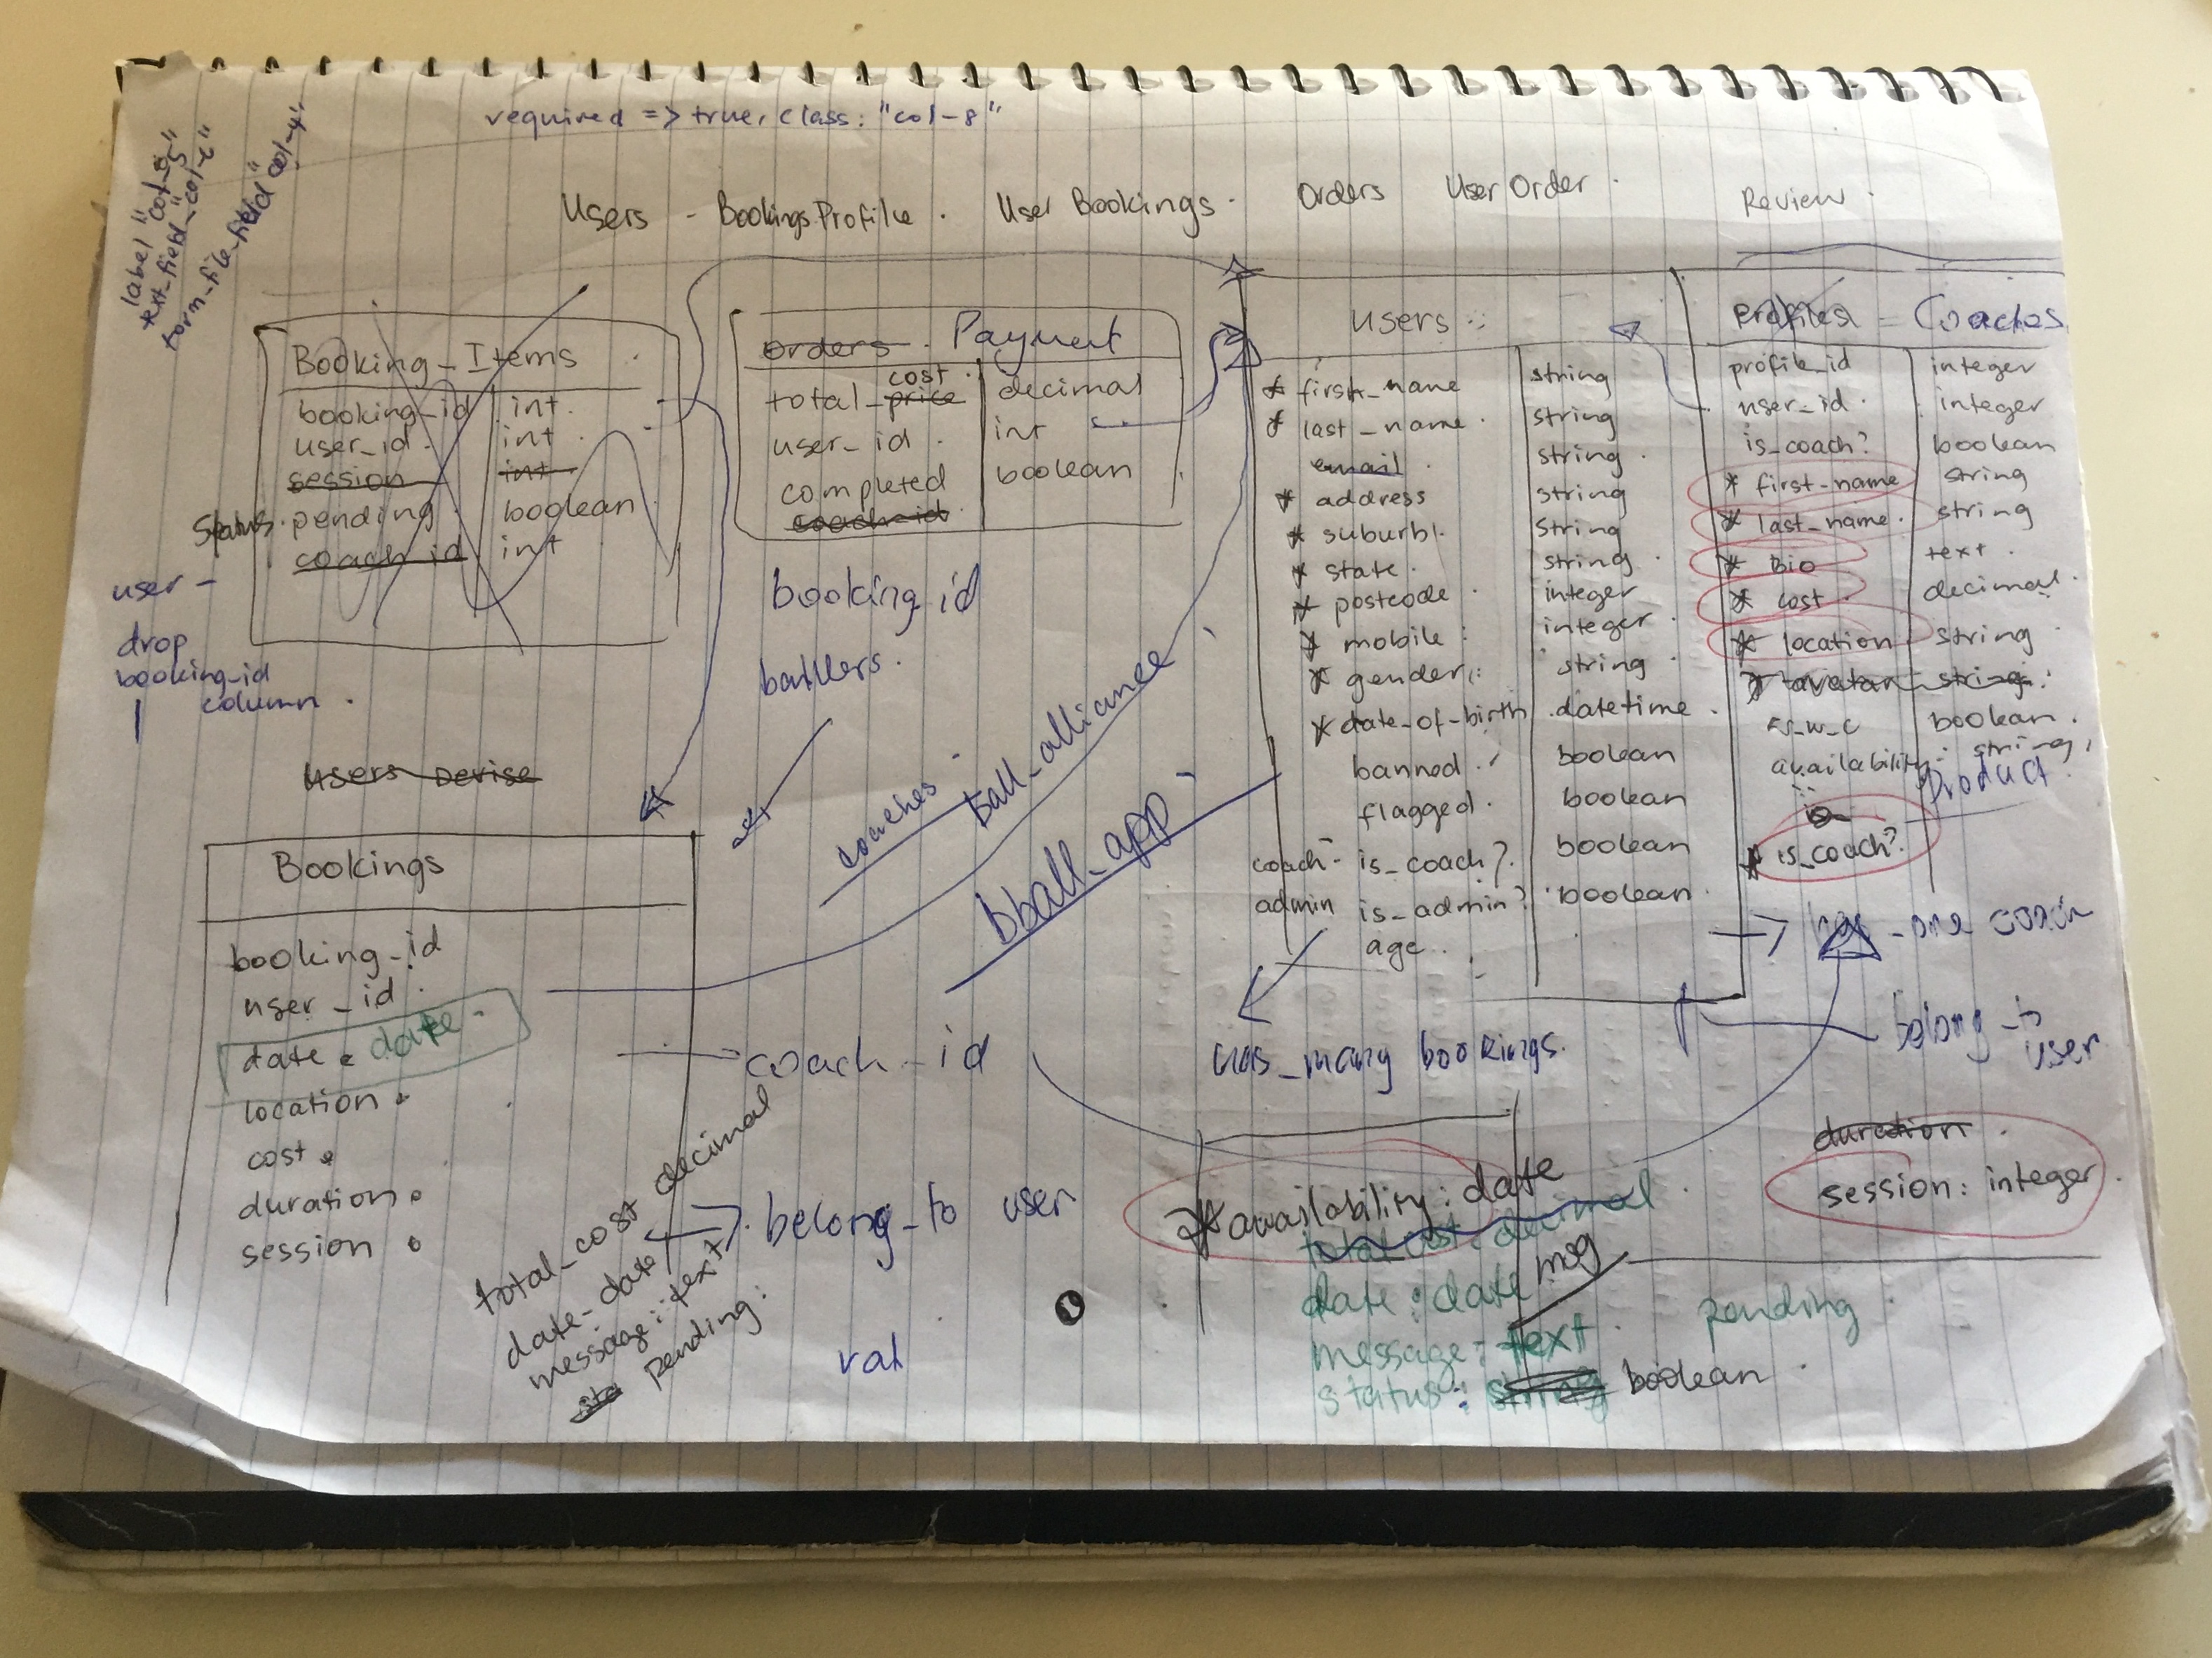 required => true, class: "col-8"
label "col-5"
text_field "col-6"
form_file_field "col-4"
Users - Bookings Profile . User Bookings . Orders User Order . Review .
Booking_Items
booking_id int.
user_id . int .
session int
status . pending . boolean
coach_id int
user -
drop
booking_id
column .
Users Devise
orders . Payment
cost .
total_price decimal
user_id . int
completed boolean
coach_id
booking_id
ballers .
coaches .
ball_alliance
bball_app .
users
* first_name string
* last_name . string
email . string .
* address string
* suburb string
* state . string .
* postcode . integer
* mobile : integer .
* gender string .
* date_of_birth . datetime .
banned . boolean
flagged . boolean
coach - is_coach ? . boolean
admin is_admin ? boolean .
age
has_many bookings.
profiles = Coaches
profile_id integer
user_id . integer
is_coach? boolean
* first_name string
* last_name . string
* Bio text .
* cost . decimal .
* location string .
* avatar string .
is_w_c boolean .
availability string
product ?
is
* is_coach?
has_one coach
belong_to
user
Bookings
booking_id
user_id .
date . date .
location .
cost .
duration .
session .
coach_id
total_cost decimal
date - date
message : text
sta pending :
belong_to user
val
* availability : date
total cost : decimal
msg
date : date
message : text
status : string boolean .
pending
duration .
session : integer .